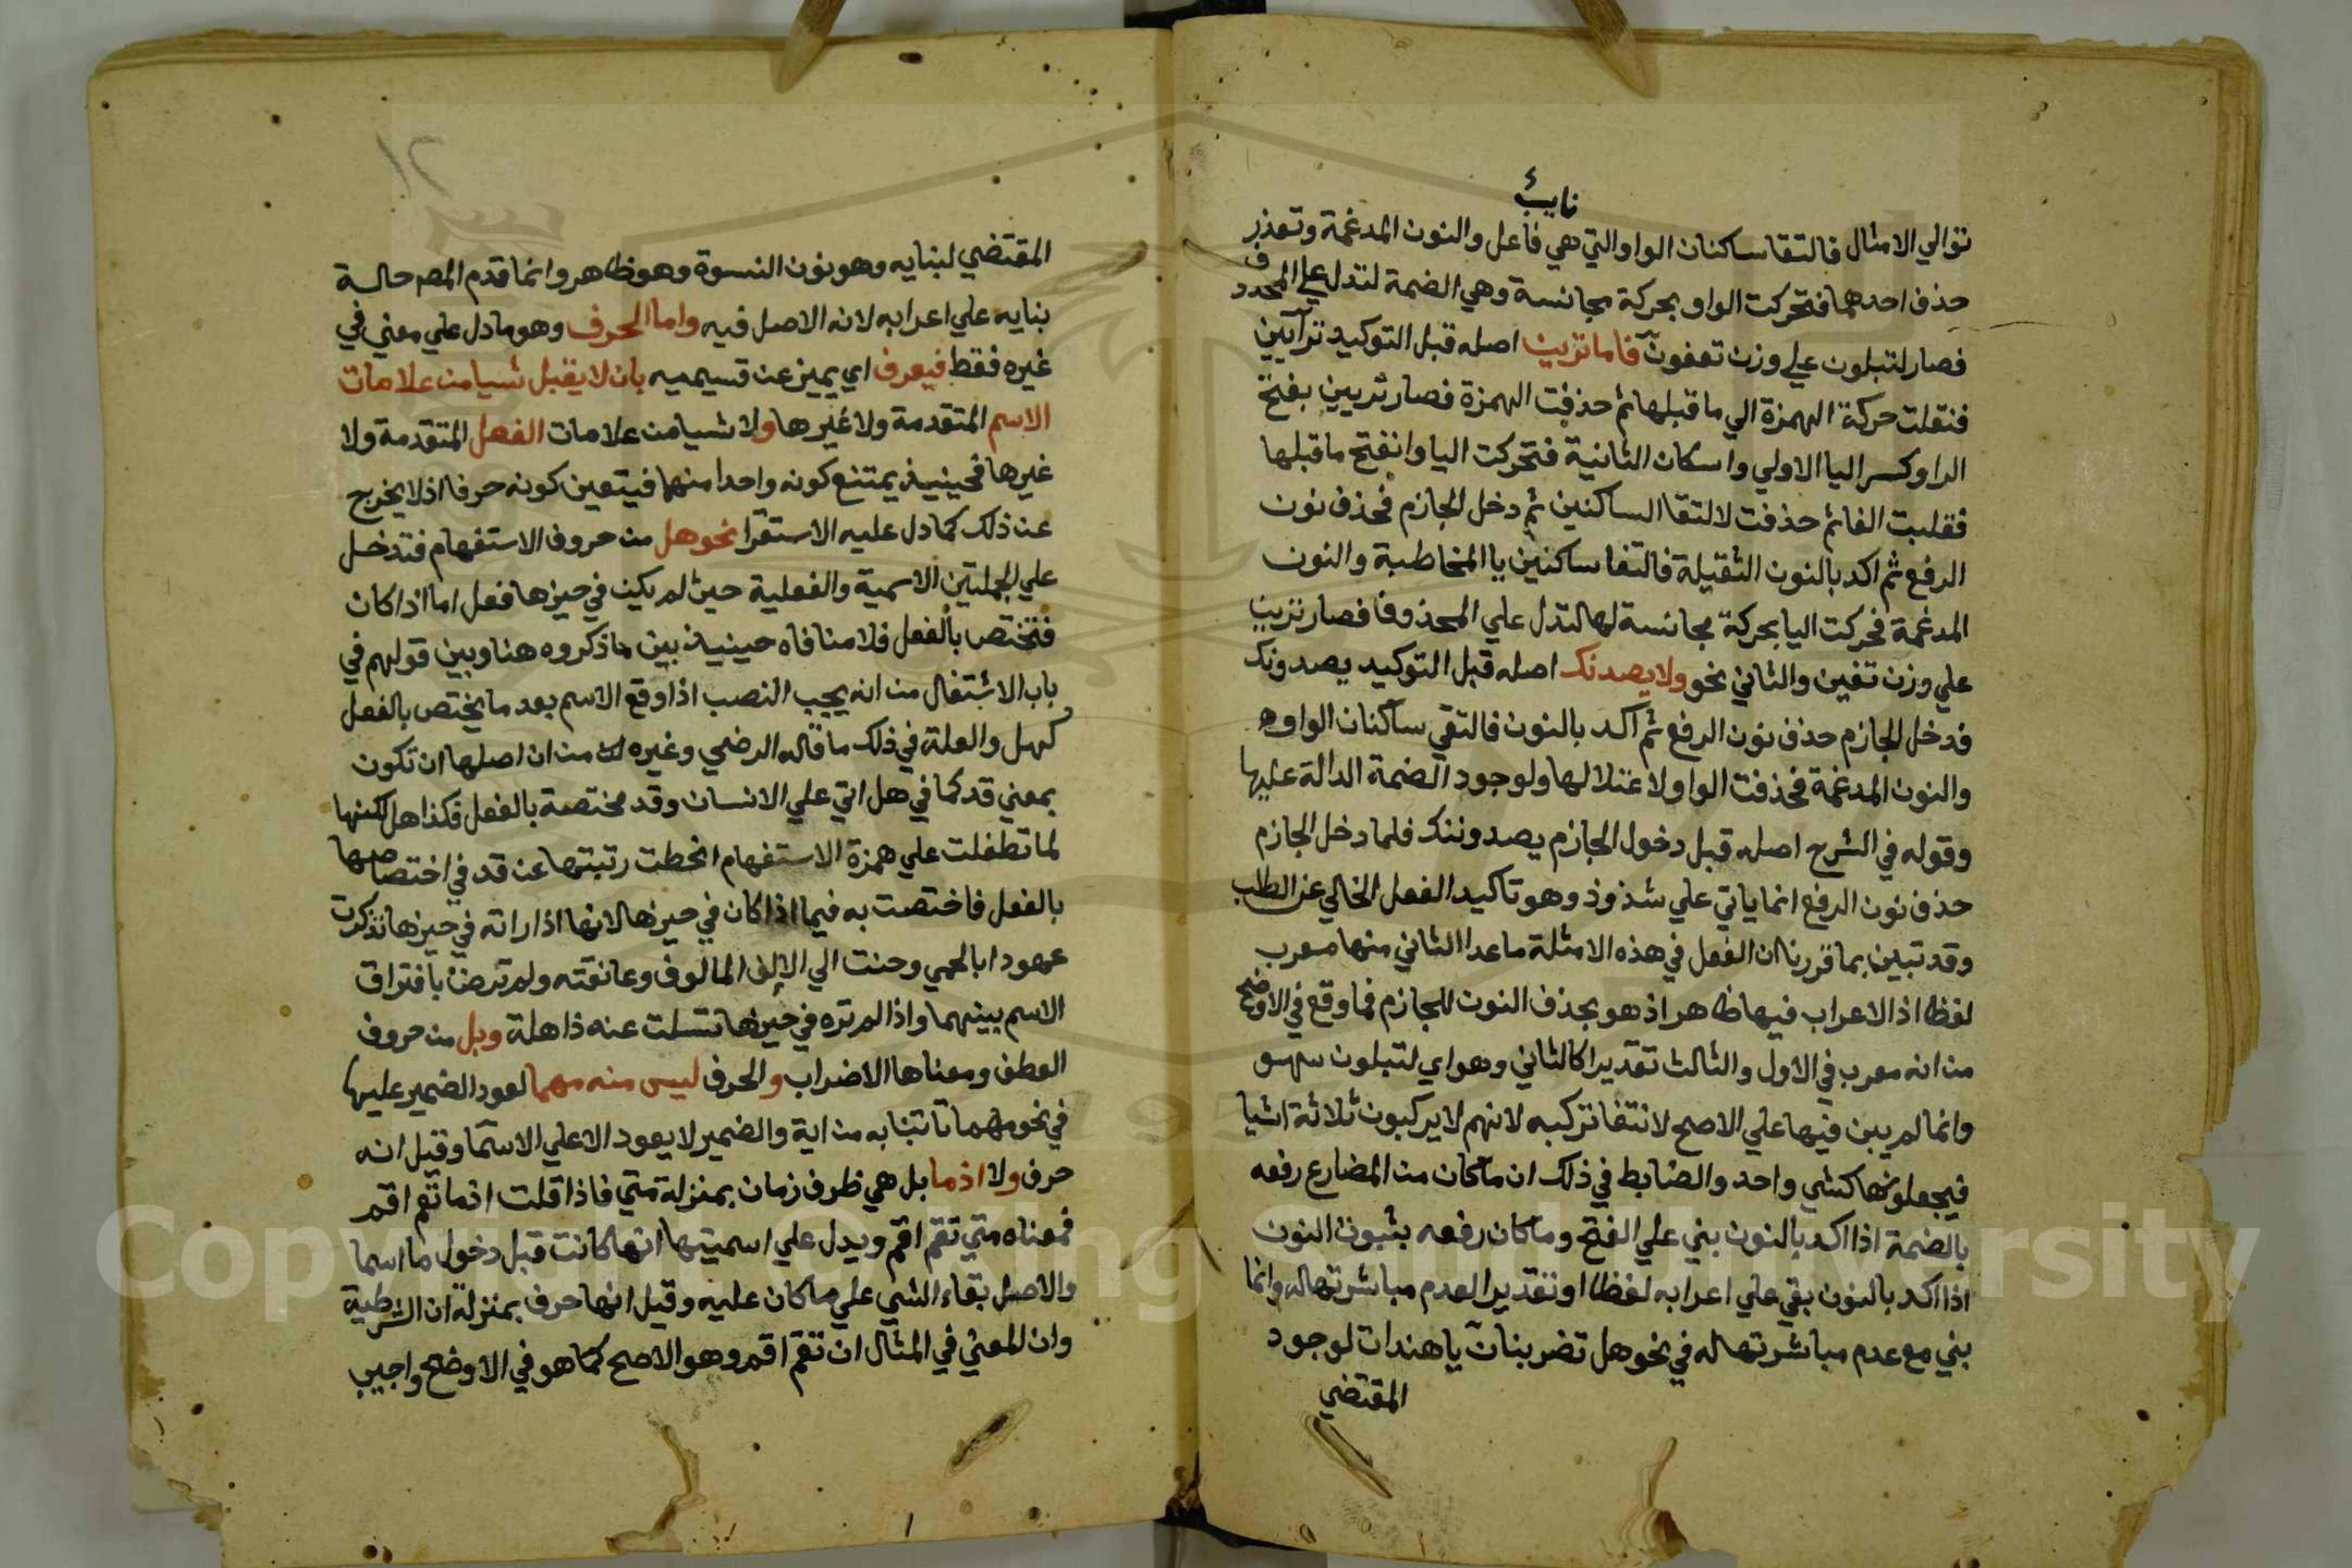 نايبئ
توالي الامثال فالتقا ساكنان الواو التي هي فاعل والنون المدغمة وتعذر
حذف احدهما فتحركت الواو بحركة مجانسة وهي الضمة لتدل علي المحذوف
فصار لتبلون علي وزن تعفون فاما ترين اصله قبل التوكيد ترآيين
فنقلت حركة الهمزة الي ما قبلها ثم حذفت الهمزة فصار تريين بفتح
الرا وكسر اليا الاولي واسكان الثانية فتحركت اليا وانفتح ما قبلها
فقلبت الفا ثم حذفت لالتقا الساكنين ثم دخل الجازم فحذف نون
الرفع ثم اكد بالنون الثقيلة فالتقا ساكنين يا المخاطبة والنون
المدغمة فحركت اليا بحركة مجانسة لها لتدل علي المحذوفا فصار ترين
علي وزن تفين والثاني نحو ولا يصدنك اصله قبل التوكيد يصدونك
فدخل الجازم حذف نون الرفع ثم اكد بالنون فالتقي ساكنان الواو
والنون المدغمة فحذفت الواو لاعتلالها ولوجود الضمة الدالة عليها
وقوله في الشرح اصله قبل دخول الجازم يصدوننك فلما دخل الجازم
حذف نون الرفع انما ياتي علي شذوذ وهو تاكيد الفعل الخالي عن الطلب
وقد تبين بما قررنا ان الفعل في هذه الامثلة ما عدا الثاني منها معرب
لفظا اذ الاعراب فيها ظاهر اذ هو بحذف النون للجازم فما وقع في الاوضح
من انه معرب في الاول والثالث تقديرا كالثاني وهو اي لتبلون سهو
وانما لم يبن فيها علي الاصح لانتفا تركبه لانهم لا يركبون ثلاثة اشيا
فيجعلونها كشي واحد والضابط في ذلك ان ما كان من المضارع رفعه
بالضمة اذا اكد بالنون بني علي الفتح وما كان رفعه بثبوت النون
اذا اكد بالنون بقي علي اعرابه لفظا او تقديرا لعدم مباشرتها له وانما
بني مع عدم مباشرتها له في نحو هل تضربنان يا هندات لوجود
المقتضي
١٢
المقتضي لبنايه وهو نون النسوة وهو ظاهر وانما قدم المص حالة
بنايه علي اعرابه لانه الاصل فيه واما الحرف وهو ما دل علي معني في
غيره فقط فيعرف اي يميز عن قسيميه بان لا يقبل شيا من علامات
الاسم المتقدمة ولا غيرها ولا شيا من علامات الفعل المتقدمة ولا
غيرها فحينيذ يمتنع كونه واحدا منهما فيتعين كونه حرفا اذ لا يخرج
عن ذلك كما دل عليه الاستقرا نحو هل من حروف الاستفهام فتدخل
علي الجملتين الاسمية والفعلية حيث لم يكن في حيزها فعل اما اذا كان
فتختص بالفعل فلا منافاه حينيذ بين ما ذكروه هنا وبين قولهم في
باب الاشتغال من انه يجب النصب اذا وقع الاسم بعد ما يختص بالفعل
كهل والعلة في ذلك ما قاله الرضي وغيره من ان اصلها ان تكون
بمعني قد كما في هل اتي علي الانسان وقد مختصة بالفعل فكذا هل لكنها
لما تطفلت علي همزة الاستفهام انحطت رتبتها عن قد في اختصاصها
بالفعل فاختصت به فيما اذا كان في حيزها لانها اذا راته في حيزها تذكرت
عهودا بالحمي وحنت الي الالف المالوف وعانقته ولم ترض بافتراق
الاسم بينهما واذا لم تره في حيزها تسلت عنه ذاهلة وبل من حروف
العطف ومعناها الاضراب والحرف ليس منه مهما لعود الضمير عليها
في نحو مهما تاتنا به من اية والضمير لا يعود الا علي الاسما وقيل انه
حرف ولا اذما بل هي ظرف زمان بمنزلة متي فاذا قلت اذما تقم اقم
فمعناه متي تقم اقم ويدل علي اسميتها انها كانت قبل دخول ما اسما
والاصل بقاء الشي علي ما كان عليه وقيل انها حرف بمنزلة ان الشرطية
وان المعني في المثال ان تقم اقم وهو الاصح كما هو في الاوضح واجيب
Copyright © King Saud University